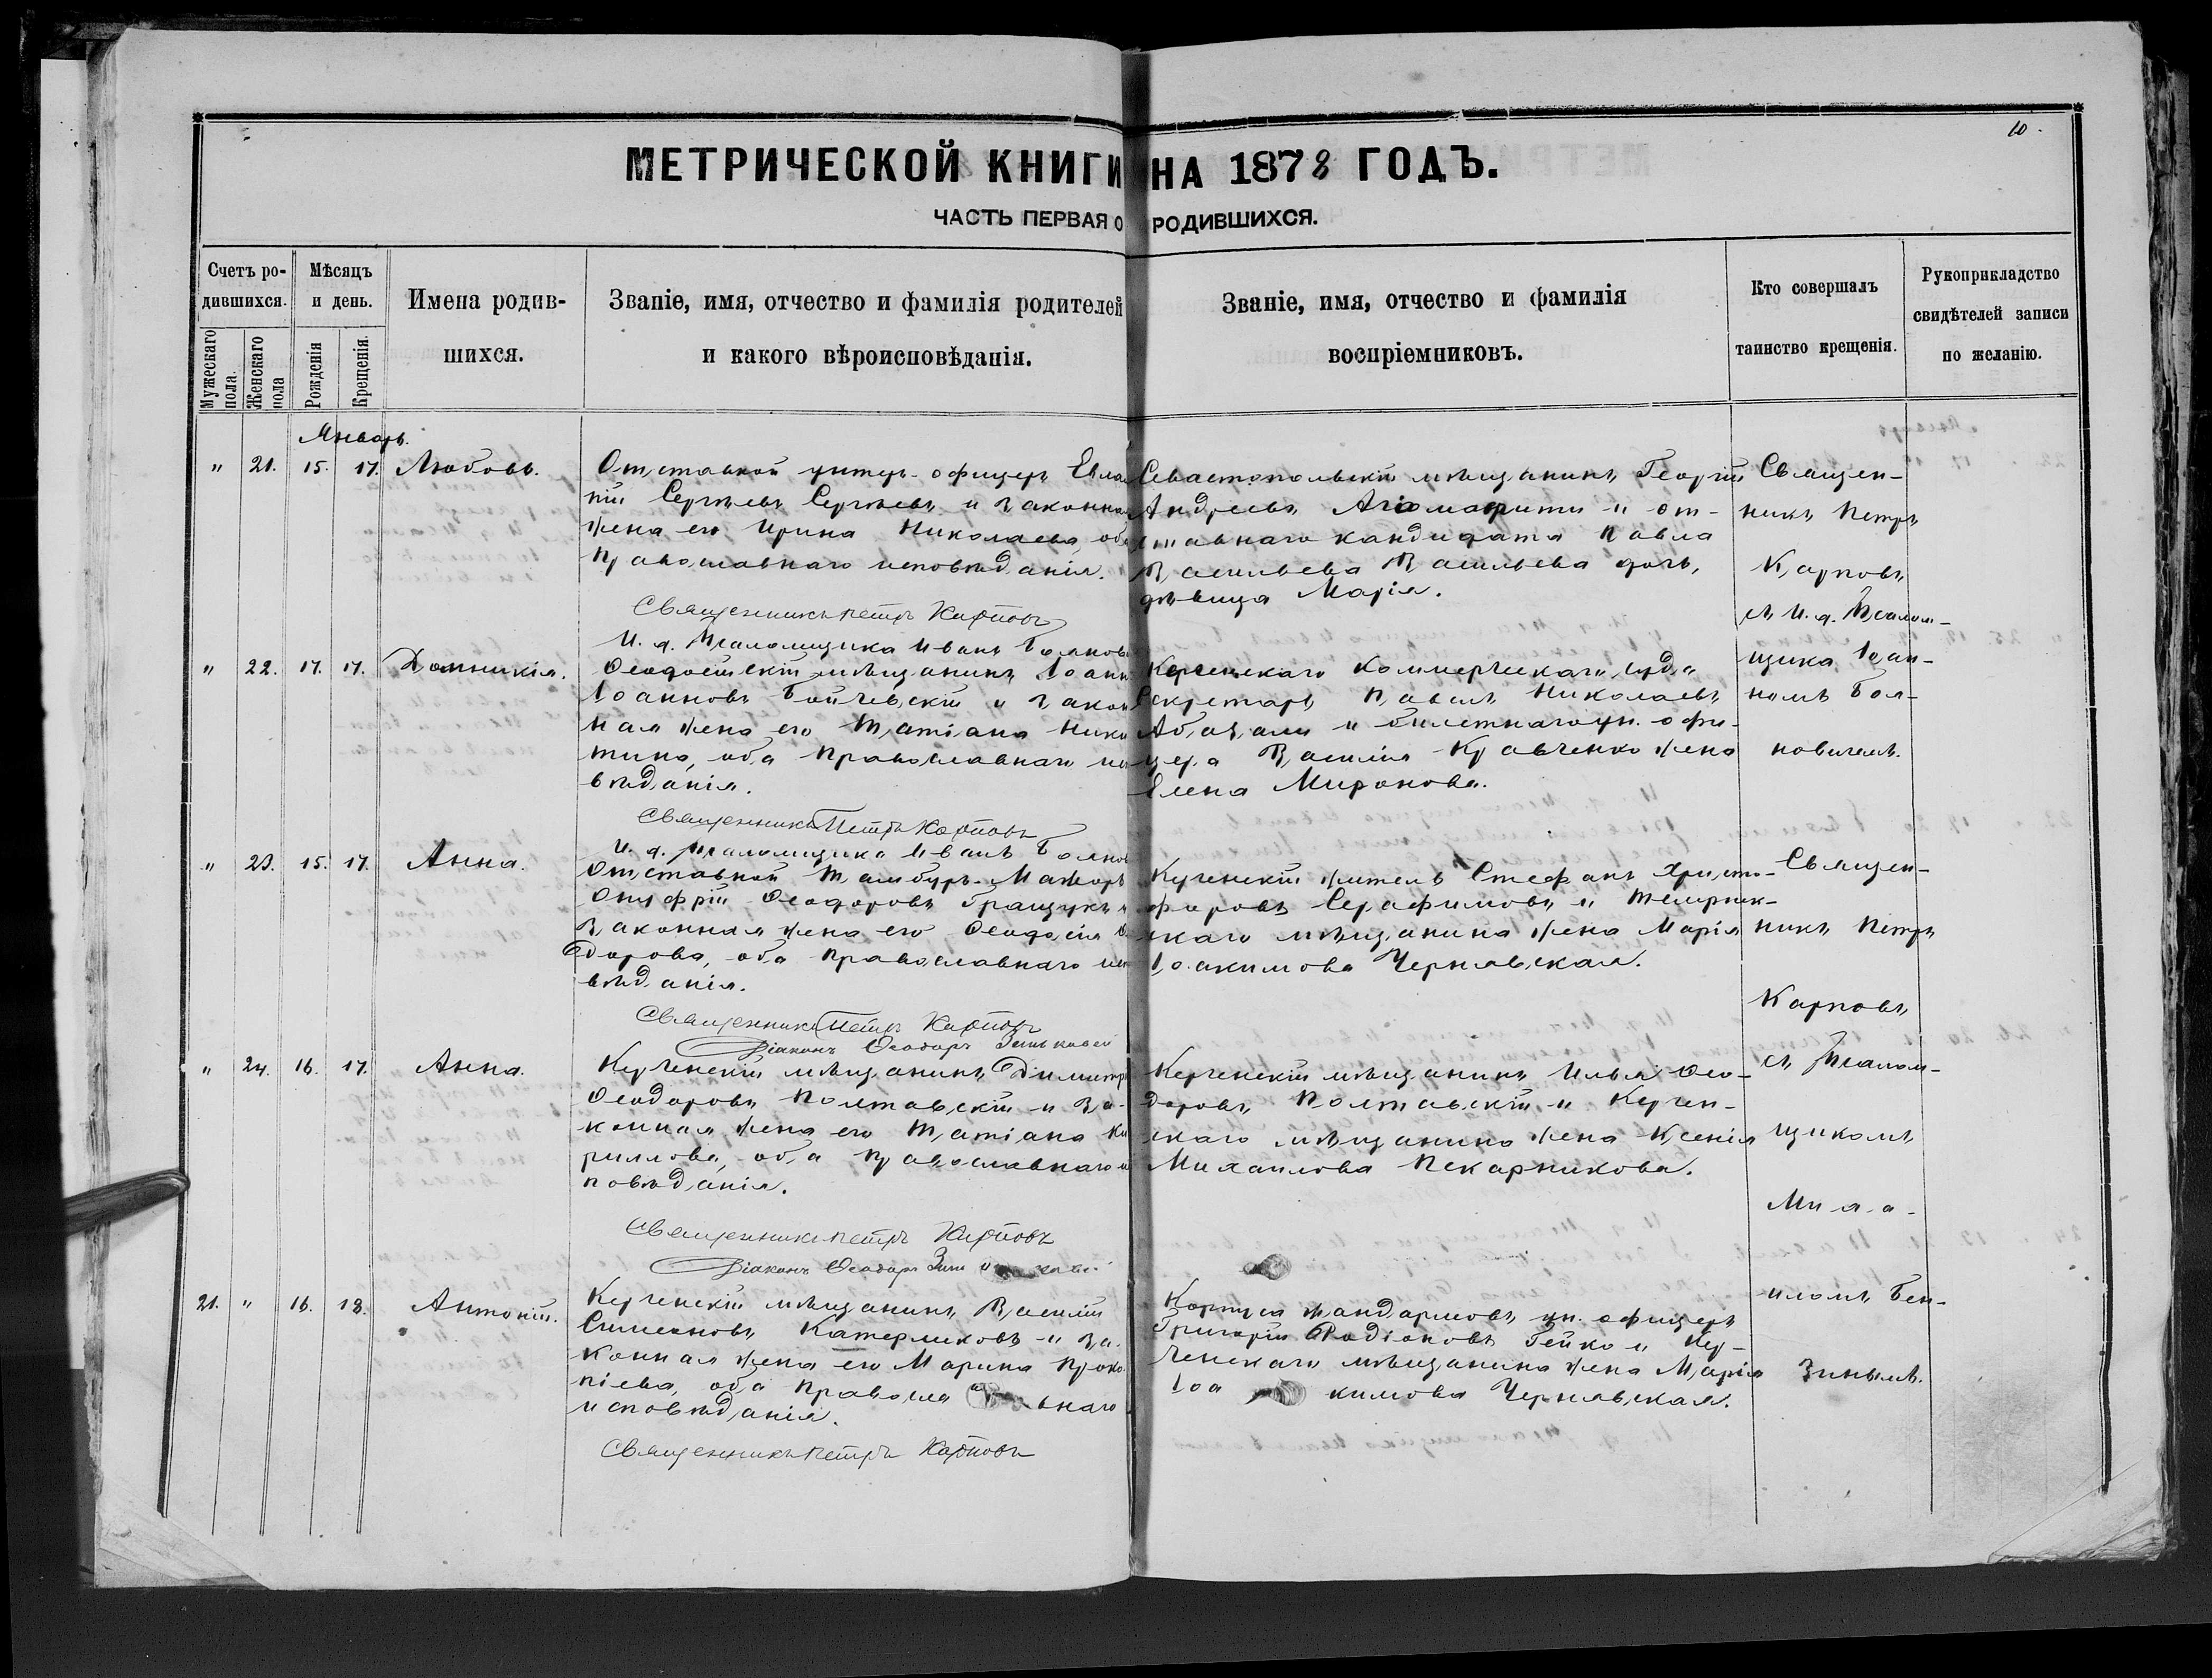 10.
МЕТРИЧЕСКОЙ КНИГИ НА 1878 ГОДЪ.
ЧАСТЬ ПЕРВАЯ О РОДИВШИХСЯ.
Счетъ ро-
дившихся.
Мужескаго пола.
Женскаго пола
Мѣсяцъ
и день.
Рожденія
Крещенія.
Имена родив-
шихся.
Званіе, имя, отчество и фамилія родителей
и какого вѣроисповѣданія.
Званіе, имя, отчество и фамилія
воспріемниковъ.
Кто совершалъ
таинство крещенія.
Рукоприкладство
свидѣтелей записи
по желанію.
Январь.
" 21. 15. 17. Любовь.
Отставной унтеръ-офицеръ Евла
пій Сергѣевъ Сергѣевъ и законна
жена его Ирина Николаева, оба
православнаго исповѣданія.
Священникъ Петръ Карповъ
И. д. Псаломщика Иванъ Боянов
Севастопольскій мѣщанинъ Георгій
Андреевъ и от-
ставнаго кандидата Павла
Васильева Васильева дочь,
дѣвица Марія.
Священ-
никъ Петръ
Карповъ
съ И. д. Псалом-
щика Іоан-
номъ Боя-
новичемъ.
" 22. 17. 17. Домникія.
Ѳеодосійскій мѣщанинъ Іоанн
Іоанновъ Бойчевскій и закон
ная жена его Татіана Ники
тина, оба православнаго ис
вѣданія.
Священникъ Петръ Карповъ
И. д. Псаломщика Иванъ Боянов
Керченскаго Коммерческаго суда
Секретарь Павелъ Николаевъ
и билетнаго ун. офи-
цера Василія Кравченко жена
Елена Миронова.
" 23. 15. 17. Анна.
Отставной Тамбуръ-Мажоръ
Онуфрій Ѳеодоровъ Гращукъ и
Законная жена его Ѳеодосія Ѳ
дорова, оба православнаго исп
вѣданія.
Священникъ Петръ Карповъ
Діаконъ Ѳеодоръ
Керченскій житель Стефанъ Христо-
форовъ Серафимовъ и Темрюк-
скаго мѣщанина жена Марія
Іоакимова Чернявская.
Священ-
никъ Петръ
Карповъ
съ Псалом-
щикомъ
Миха-
иломъ Бен-
зинымъ.
" 24. 16. 17. Анна.
Керченскій мѣщанинъ Димитрі
Ѳеодоровъ Полтавскій и за-
конная жена его Татіана Ки
риллова, оба православнаго и
повѣданія.
Священникъ Петръ Карповъ
Діаконъ Ѳеодоръ
Керченскій мѣщанинъ Илья Ѳео-
доровъ Полтавскій и Керчен-
скаго мѣщанина жена Ксенія
Михаилова Пекарникова.
21. " 16. 18. Антоній.
Керченскій мѣщанинъ Василій
Симеоновъ Катерликовъ и за-
конная жена его Марина Проко
піева, оба православнаго
исповѣданія.
Священникъ Петръ Карповъ
Корпуса жандармовъ ун. офицеръ
Григорій Родіоновъ Гейко и Кер-
ченскаго мѣщанина жена Марія
Іоакимова Чернявская.